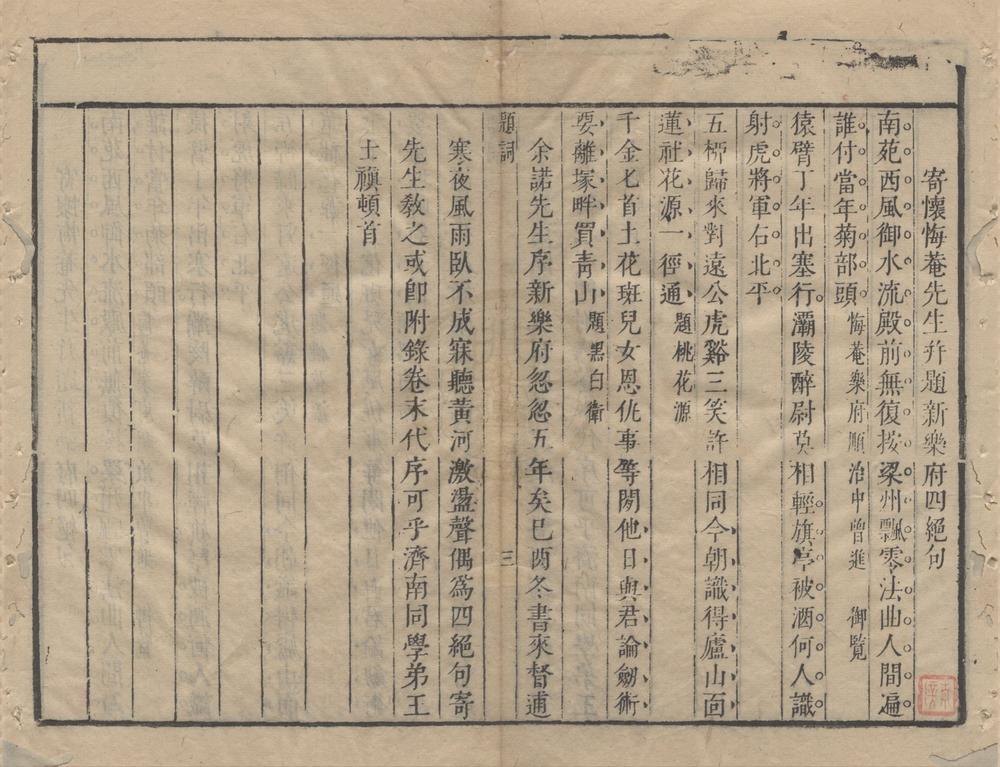 寄懷悔菴先生幷題新樂府四絕句
南苑西風御水流殿前無復按梁州飄零法曲人間遍
誰付當年菊部頭悔菴樂府順治中曾進 御覽
猿臂丁年出塞行灞陵醉尉莫相輕旗亭被酒何人識
射虎將軍右北平
五柳歸來對遠公虎谿三笑許相同今朝識得廬山面
蓮社花源一徑通題桃花源
千金匕首土花斑兒女恩仇事等閒他日與君論劒術
要離塚畔買青山題黑白衛
余諾先生序新樂府忽忽五年矣已酉冬書來督逋
題詞 三
寒夜風雨臥不成寐聽黃河激盪聲偶爲四絕句寄
先生敎之或卽附錄卷末代序可乎濟南同學弟王
士禛頓首